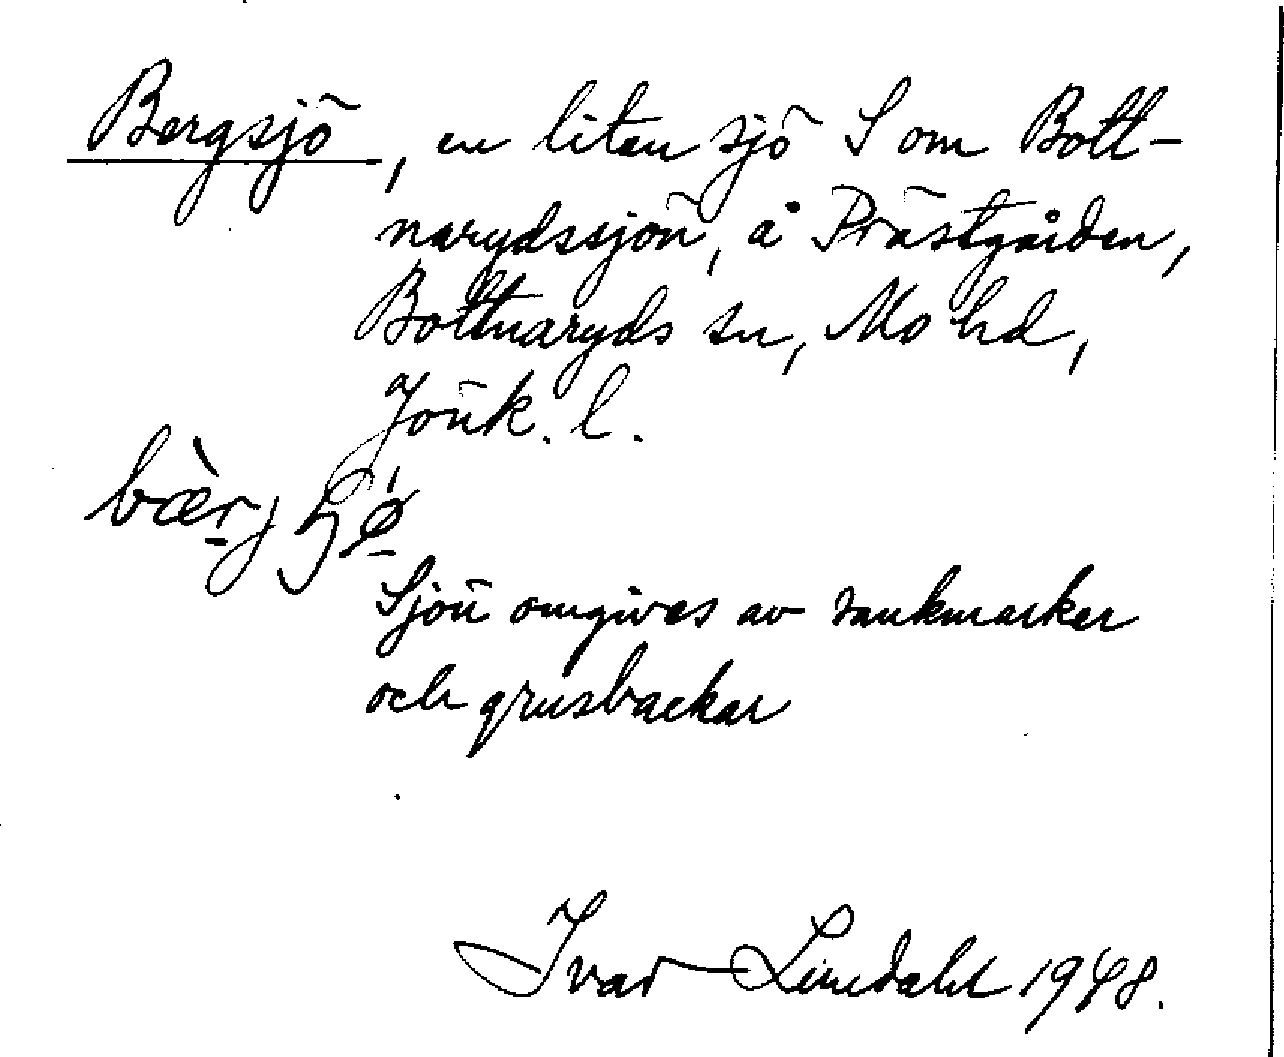 Bergsjö, en liten sjö S om Bott-
narydssjön, å Prästgården,
Bottnaryds sn, Mo hd,
Jönk. l.
Sjön omgives av sankmarker
och grusbackar
Ivar Lindahl 1948.